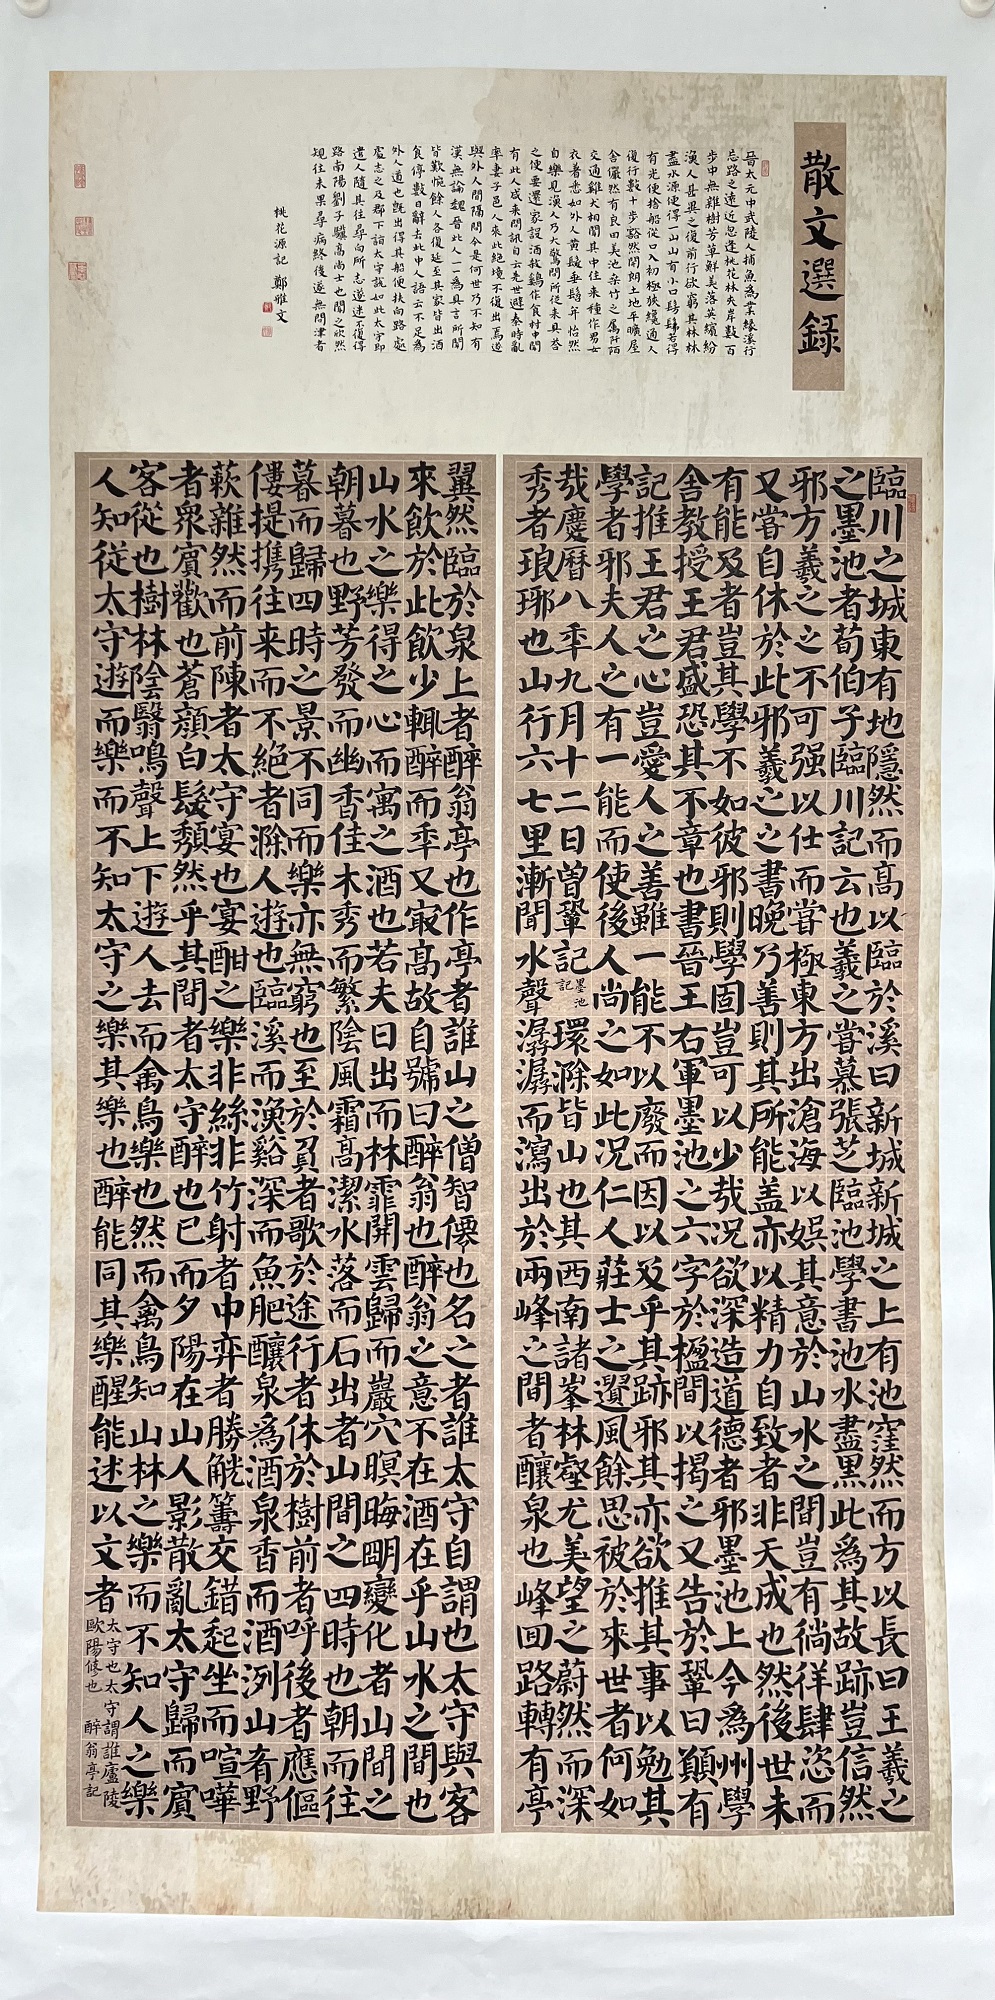 散文選錄
晉太元中武陵人捕魚為業緣溪行
忘路之遠近忽逢桃花林夾岸數百
步中無雜樹芳草鮮美落英繽紛
漁人甚異之復前行欲窮其林林
盡水源便得一山山有小口髣髴若得
有光便捨船從口入初極狹纔通人
復行數十步豁然開朗土地平曠屋
舍儼然有良田美池桑竹之屬阡陌
交通雞犬相聞其中往來種作男女
衣著悉如外人黃髮垂髫年怡然
自樂見漁人乃大驚問所從來具答
之便要還家設酒殺鷄作食村中聞
有此人咸來問訊自云先世避秦時亂
率妻子邑人來此絕境不復出焉遂
與外人間隔問今是何世乃不知有
漢無論魏晉此人一一為具言所聞
皆歎惋餘人各復延至其家皆出酒
食停數日辭去此中人語云不足為
外人道也既出得其船便扶向路處
處志之及郡下詣太守說如此太守即
遣人隨其往尋向所志遂迷不復得
路南陽劉子驥高尚士也聞之欣然
規往未果尋病終後遂無問津者
桃花源記 鄭雅文
臨川之城東有地隱然而高以臨於溪曰新城新城之上有池窪然而方以長曰王羲之
之墨池者荀伯子臨川記云也羲之嘗慕張芝臨池學書池水盡黑此為其故跡豈信然
邪方羲之之不可强以仕而嘗極東方出滄海以娛其意於山水之間豈有徜徉肆恣而
又嘗自休於此邪羲之之書晚乃善則其所能盖亦以精力自致者非天成也然後世未
有能及者豈其學不如彼邪則學固豈可以少哉况欲深造道德者邪墨池上今為州學
舍教授王君盛恐其不章也書晉王右軍墨池之六字於楹間以揭之又告於鞏曰願有
記推王君之心豈愛人之善雖一能不以廢而因以及乎其跡邪其亦欲推其事以勉其
學者邪夫人之有一能而使後人尚之如此况仁人莊士之遺風餘思被於來世者何如
哉慶曆八年九月十二日曾鞏記墨池記環滁皆山也其西南諸峯林壑尤美望之蔚然而深
秀者琅琊也山行六七里漸聞水聲潺潺而瀉出於兩峰之間者釀泉也峰回路轉有亭
翼然臨於泉上者醉翁亭也作亭者誰山之僧智僊也名之者誰太守自謂也太守與客
來飲於此飲少輒醉而年又最高故自號曰醉翁也醉翁之意不在酒在乎山水之間也
山水之樂得之心而寓之酒也若夫日出而林霏開雲歸而巖穴暝晦明變化者山間之
朝暮也野芳發而幽香佳木秀而繁陰風霜高潔水落而石出者山間之四時也朝而往
暮而歸四時之景不同而樂亦無窮也至於負者歌於途行者休於樹前者呼後者應傴
僂提携往来而不絶者滁人遊也臨溪而漁谿深而魚肥釀泉為酒泉香而酒洌山肴野
蔌雜然而前陳者太守宴也宴酣之樂非絲非竹射者中弈者勝觥籌交錯起坐而喧嘩
者衆賓歡也蒼顏白髮頹然乎其間者太守醉也已而夕陽在山人影散亂太守歸而賓
客從也樹林陰翳鳴聲上下遊人去而禽鳥樂也然而禽鳥知山林之樂而不知人之樂
人知從太守遊而樂而不知太守之樂其樂也醉能同其樂醒能述以文者太守也太守謂誰廬陵歐陽修也 醉翁亭記